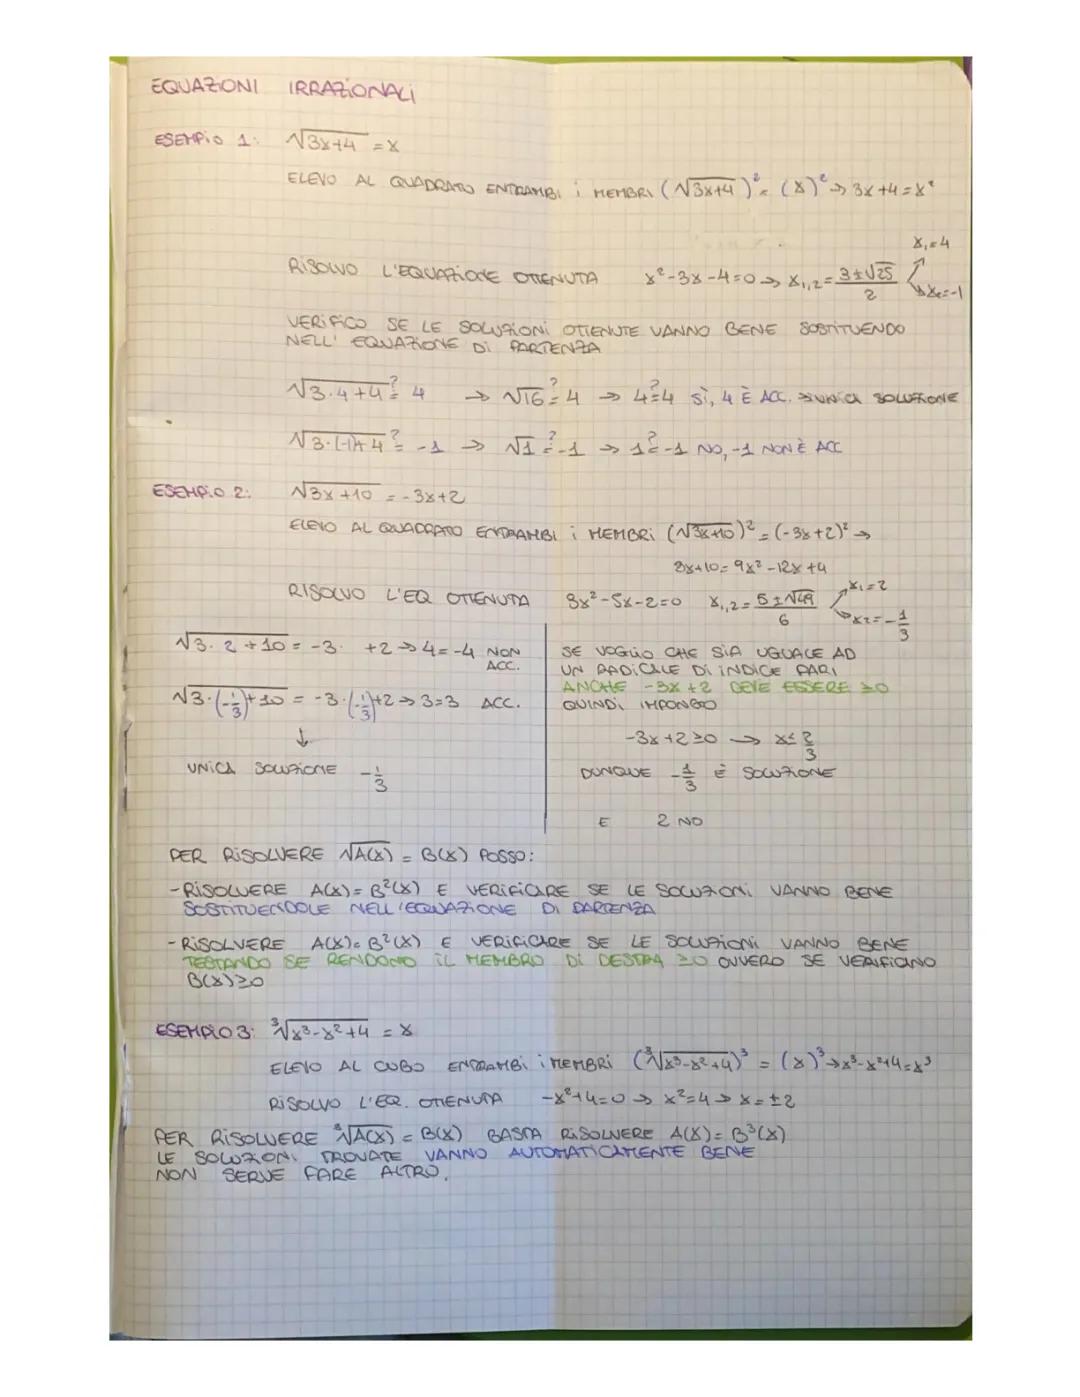 EQUAZIONI IRRAZIONALI
ESEMPIO 1: √3x+4 = x
ELEVO AL QUADRATO ENTRAMBI I MEMBRI (√3x+4)² = (x)² → 3x+4 = x²
x₁=4
RISOLVO L'EQUAZIONE OTTENUTA x²-3x-4=0 → x₁,₂ = 3±√25 / 2
x₂=-1
VERIFICO SE LE SOLUZIONI OTTENUTE VANNO BENE SOSTITUENDO
NELL'EQUAZIONE DI PARTENZA
√3·4+4 ≟ 4 → √16 ≟ 4 → 4≟4 SÌ, 4 È ACC. → UNICA SOLUZIONE
√3·(-1)+4 ≟ -1 → √1 ≟ -1 → 1≟-1 NO, -1 NON È ACC
ESEMPIO 2: √3x+10 = -3x+2
ELEVO AL QUADRATO ENTRAMBI I MEMBRI (√3x+10)² = (-3x+2)² →
3x+10 = 9x²-12x+4
RISOLVO L'EQ OTTENUTA 3x²-5x-2=0 x₁,₂ = 5±√49 / 6 x₁=2
x₂=-1/3
√3·2+10 = -3· +2 → 4=-4 NON
ACC.
√3·(-1/3)+10 = -3·(-1/3)+2 → 3=3 ACC.
↓
UNICA SOLUZIONE -1/3
SE VOGLIO CHE SIA UGUALE AD
UN RADICALE DI INDICE PARI
ANCHE -3x+2 DEVE ESSERE ≥0
QUINDI IMPONGO
-3x+2≥0 → x≤2/3
DUNQUE -1/3 È SOLUZIONE
E 2 NO
PER RISOLVERE √A(x) = B(x) POSSO:
-RISOLVERE A(x)=B²(x) E VERIFICARE SE LE SOLUZIONI VANNO BENE
SOSTITUENDOLE NELL'EQUAZIONE DI PARTENZA
-RISOLVERE A(x)=B²(x) E VERIFICARE SE LE SOLUZIONI VANNO BENE
TESTANDO SE RENDONO IL MEMBRO DI DESTRA ≥0 OVVERO SE VERIFICANO
B(x)≥0
ESEMPIO 3: ³√x³-x²+4 = x
ELEVO AL CUBO ENTRAMBI I MEMBRI (³√x³-x²+4)³ = (x)³ → x³-x²+4=x³
RISOLVO L'EQ. OTTENUTA -x²+4=0 → x²=4 → x=±2
PER RISOLVERE ³√A(x) = B(x) BASTA RISOLVERE A(x)=B³(x)
LE SOLUZIONI TROVATE VANNO AUTOMATICAMENTE BENE
NON SERVE FARE ALTRO.